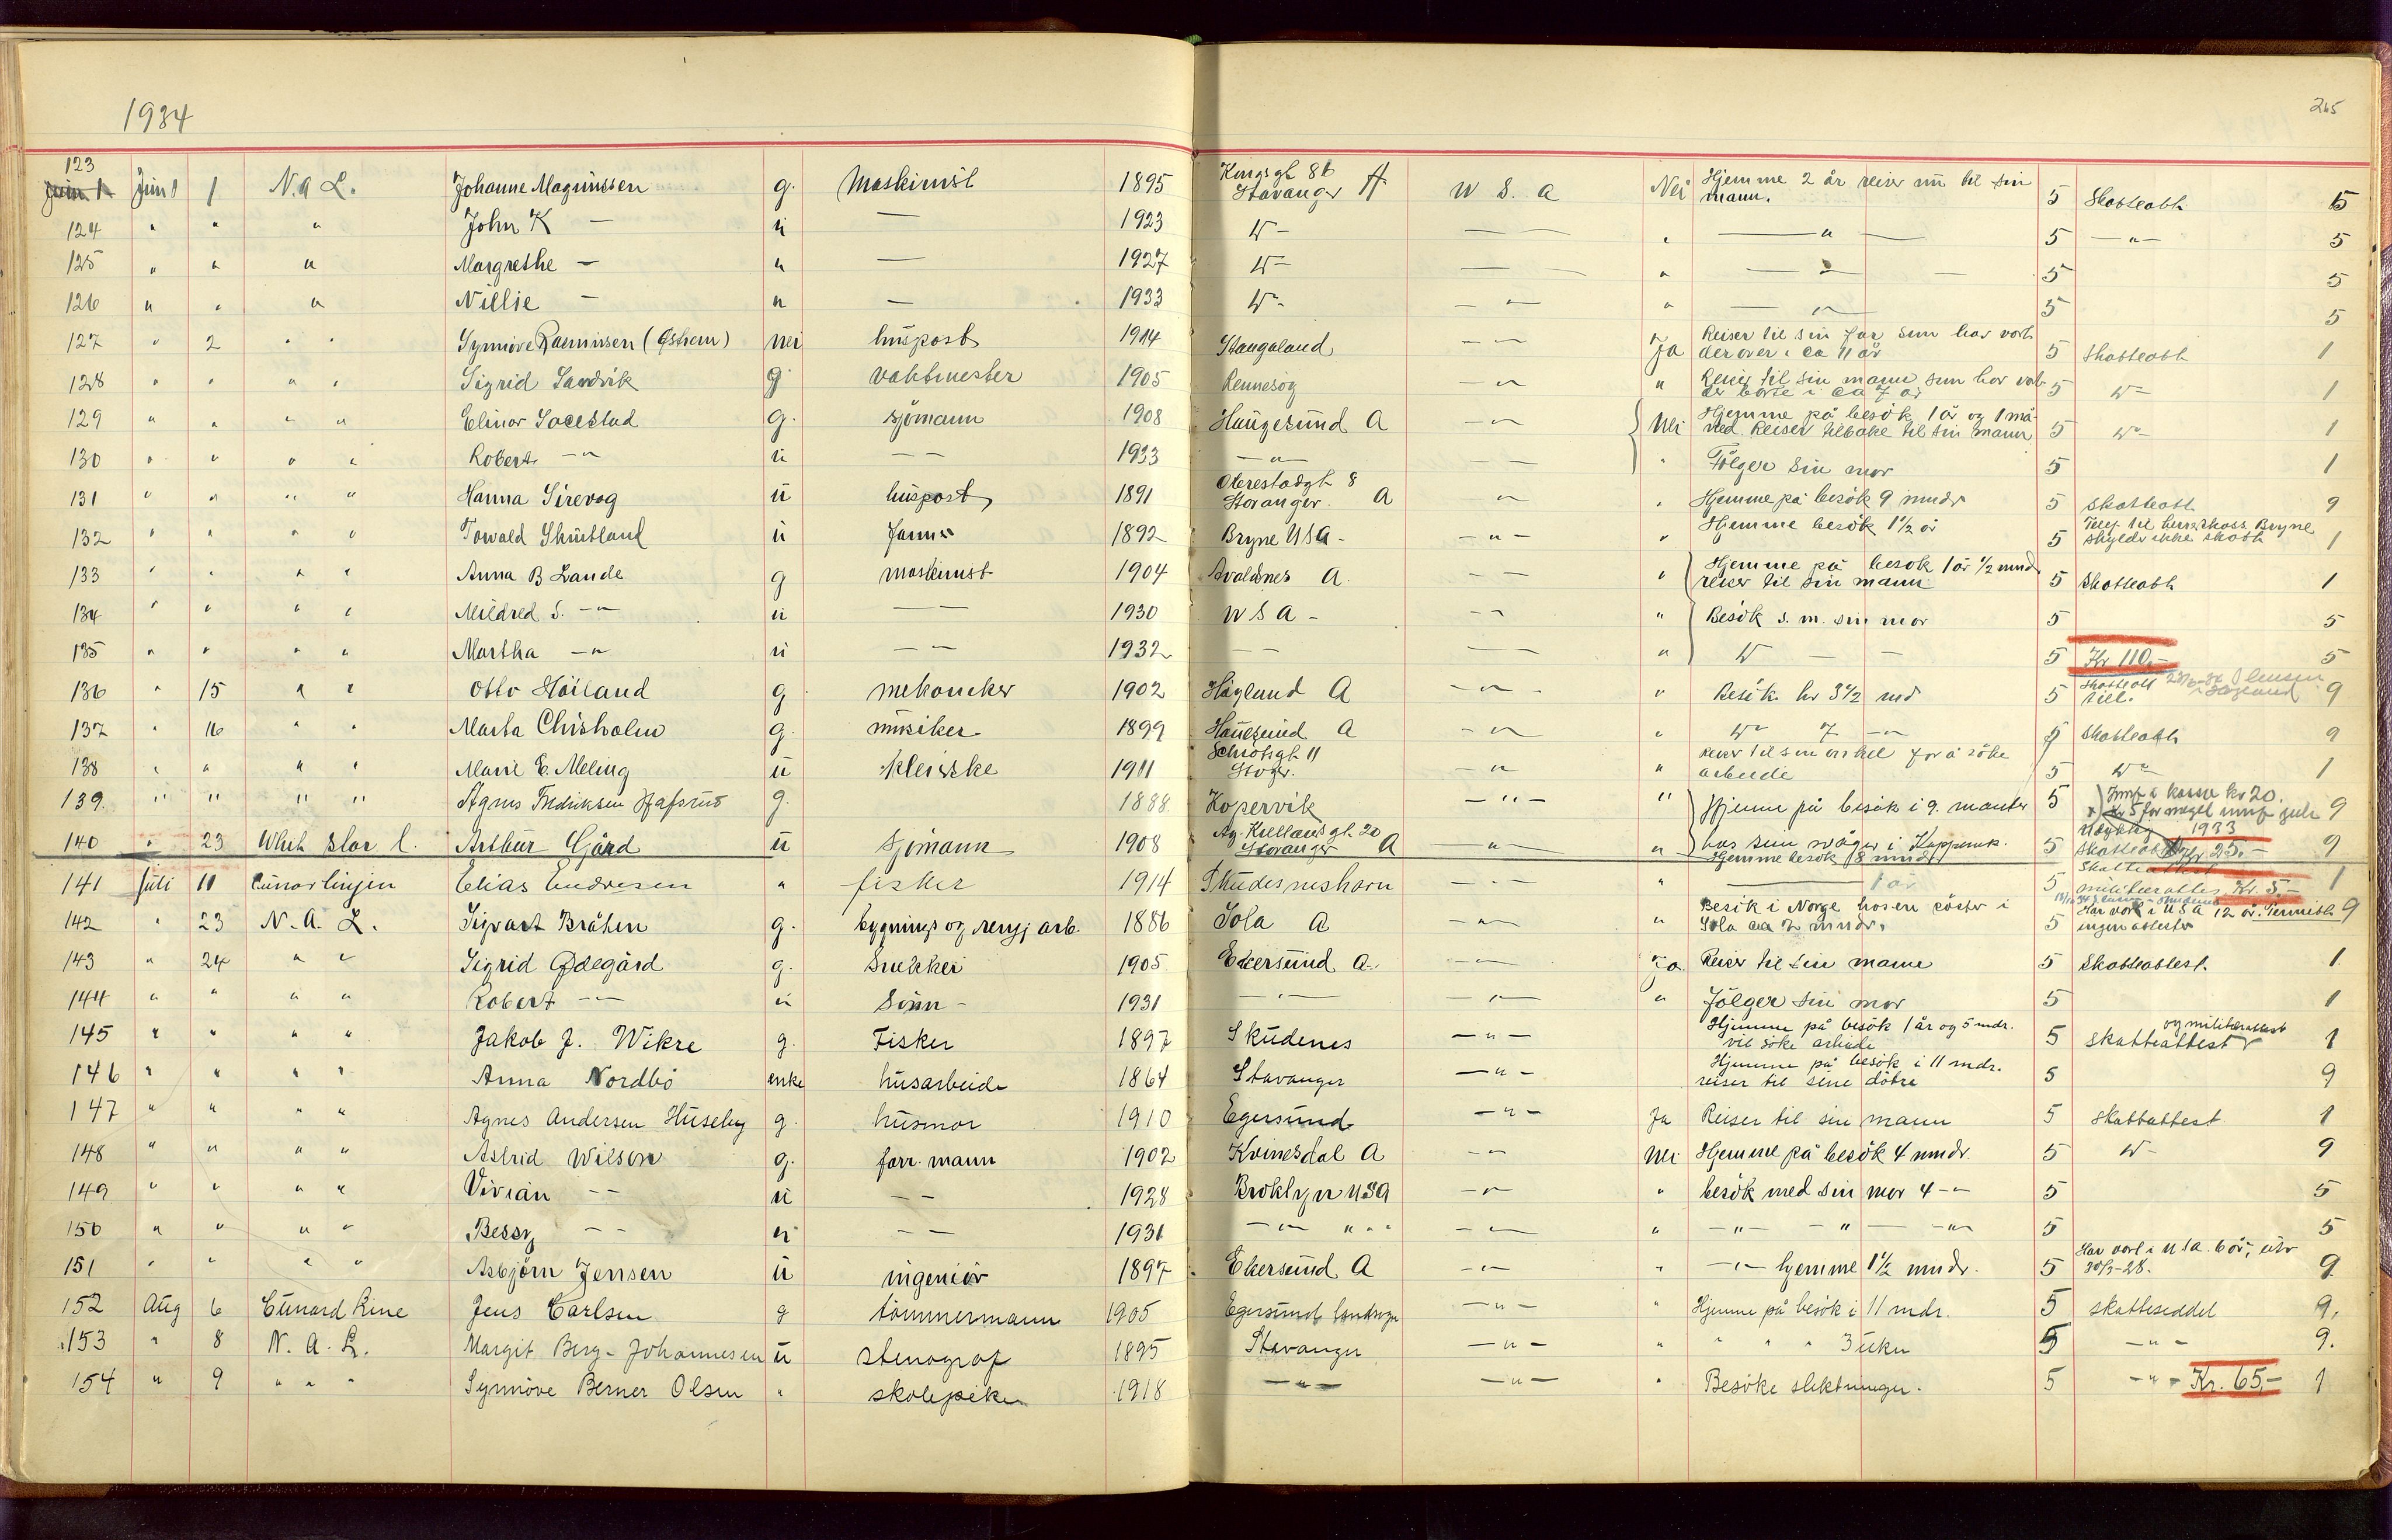 1934
265
123 Juni 1 N. A L. Johanne Magnussen g. Maskinist 1895 Kongsgt 86 Stavanger A U S. A Nei Hjemme 2 år reiser nu til sin mann. 5 Skatteatt. 5
124 " " " John K — u — 1923 — — " — " — 5 — " — 5
125 " " " Margrethe — u — 1927 — — " — 5 5
126 " " " Nillie — u — 1933 — " — " — " — 5 5
127 " 2 " " Synnöve Rasmussen (Östhem) nei huspost 1914 Stangaland — " — Ja Reiser til sin far som har vært der over i ca 11 år 5 Skatteatt 1
128 " " " " Sigrid Sandvik g vaktmester 1905 Rennesöy — " — " Reiser til sin mann som har vært der borte i ca 7 år 5 1
129 " " " " Elinor g. sjömann 1908 Haugesund A — " — Nei Hjemme på besök 1 år og 1 måned. Reiser tilbake til sin mann 5 1
130 " " " " Robert — " — u — — 1933 — " — — " Fölger sin mor 5 1
131 " " " " Hanna Sirevog u huspost 1891 Stavanger. A — " — " Hjemme på besök 9 mndr 5 skatteatt. 9
132 " " " " Torvald Skutland u farmer 1892 Bryne USA - — " — " Hjemme besök 1½ år 5 Telef. til herredskass. Bryne skylder ikke skatt 1
133 " " " " Anna B Lande g maskinist 1904 Avaldsnes A. — — " Hjemme på besök 1 år ½ mnd reiser til sin mann 5 Skatteatt 1
134 " " " " Mildred S. — " — u — — 1930 U S A - — " — " Besök s. m. sin mor 5 5
135 " " " " Martha — " — u — — 1932 — — — — " — — 5 Kr 110.- 5
136 " 15 " " Otto Höiland g mekaniker 1902 Högland A — " — " Besök her 3½ md 5 Skatteatt 9
137 " 16 " " Marta Chisholm g. musiker 1899 Haugesund A — " — " 7 — " — 5 Skatteatt 9
138 " " " " Marie E. Meling u kleiske 1911 Schiötzgt 11 Stvgr. — " — " Reiser til sin onkel for å söke arbeide 5 1
139. " " " " Agnes Fredriksen Hafsmo g. 1888 Kopervik — " — " Hjemme på besök i 9. måneder 5 Innf i kasse kr 20. 9
140 " 23 White Star l. Arthur Gård u Sjömann 1908 Ag. Kiellandsgt. 20 Stavanger A — " — " hos sin svåger i Kopervik. Hjemme besök 8 mndr 5 Skatteatt Kr 25.- 9
141 Juli 11 Cunarlinjen Elias Endresen " fisker 1914 Skudesneshavn — " — " — 1 år 5 Skatteattest militærattes Kr. 5.- 1
142 " 23 N. A. L. Sigvart Bråten g. bygnings og rengj arb. 1886 Sola A — " — " Besök i Norge hos en söster i Sola ca 2 mndr. 5 Har vært i U S A 12 år. ingen attester 9
143 " 24 " " Sigrid Ödegård g. Snekker 1905 Ekersund A. — " — Ja Reiser til sin mann 5 Skatteattest. 1
144 " " " " Robert — — u Sönn - 1931 — " — — " — " Fölger sin mor 5 1
145 " " " " Jakob J. Wikre g. Fisker 1897 Skudenes — " — Hjemme på besök 1 år og 5 mdr. vil söke arbeide 5 skatteattest og militærattest 1
146 " " " " Anna Nordbö enke husarbeide 1864 Stavanger — " — Hjemme på besök i 11 mdr. reiser til sine dötre 5 9
147 " " " " Agnes Andersen Huseby g. husmor 1910 Egersund — " — Ja Reiser til sin mann 5 Skattattest 1
148 " " " " Astrid Wilson g. forr. mann 1902 Kvinesdal A — " — Nei Hjemme på besök 4 mndr. 5 9
149 " " " " Vivian — — u — — 1928 Broklyn USA — " — " besök med sin mor 4 — " — 5 5
150 " " " " Bessy — — u — — 1931 — " — " " " — " — " — " — — " — — " — 5 5
151 " " " " Asbjörn Jensen u ingeniör 1897 Ekersund A — " — " — " — hjemme 1½ mndr. 5 Har vært i U S A. 6 år, utv 30/3-28. 9
152 Aug 6 Cunard Line Jens Carlsen g tömmermann 1905 Egersund landsogn — " — " Hjemme på besök i 11 mdr. 5 skatteseddel 9.
153 " 8 N. A. L. Margit Berg - Johannesen u stenograf 1895 Stavanger — " — " " " " 3 uker 5 — " — 9.
154 " 9 " " " Synnöve Berner Olsen " skolepike 1918 — " — — " — " Besöke slektninger. 5 — " — Kr. 65.- 1